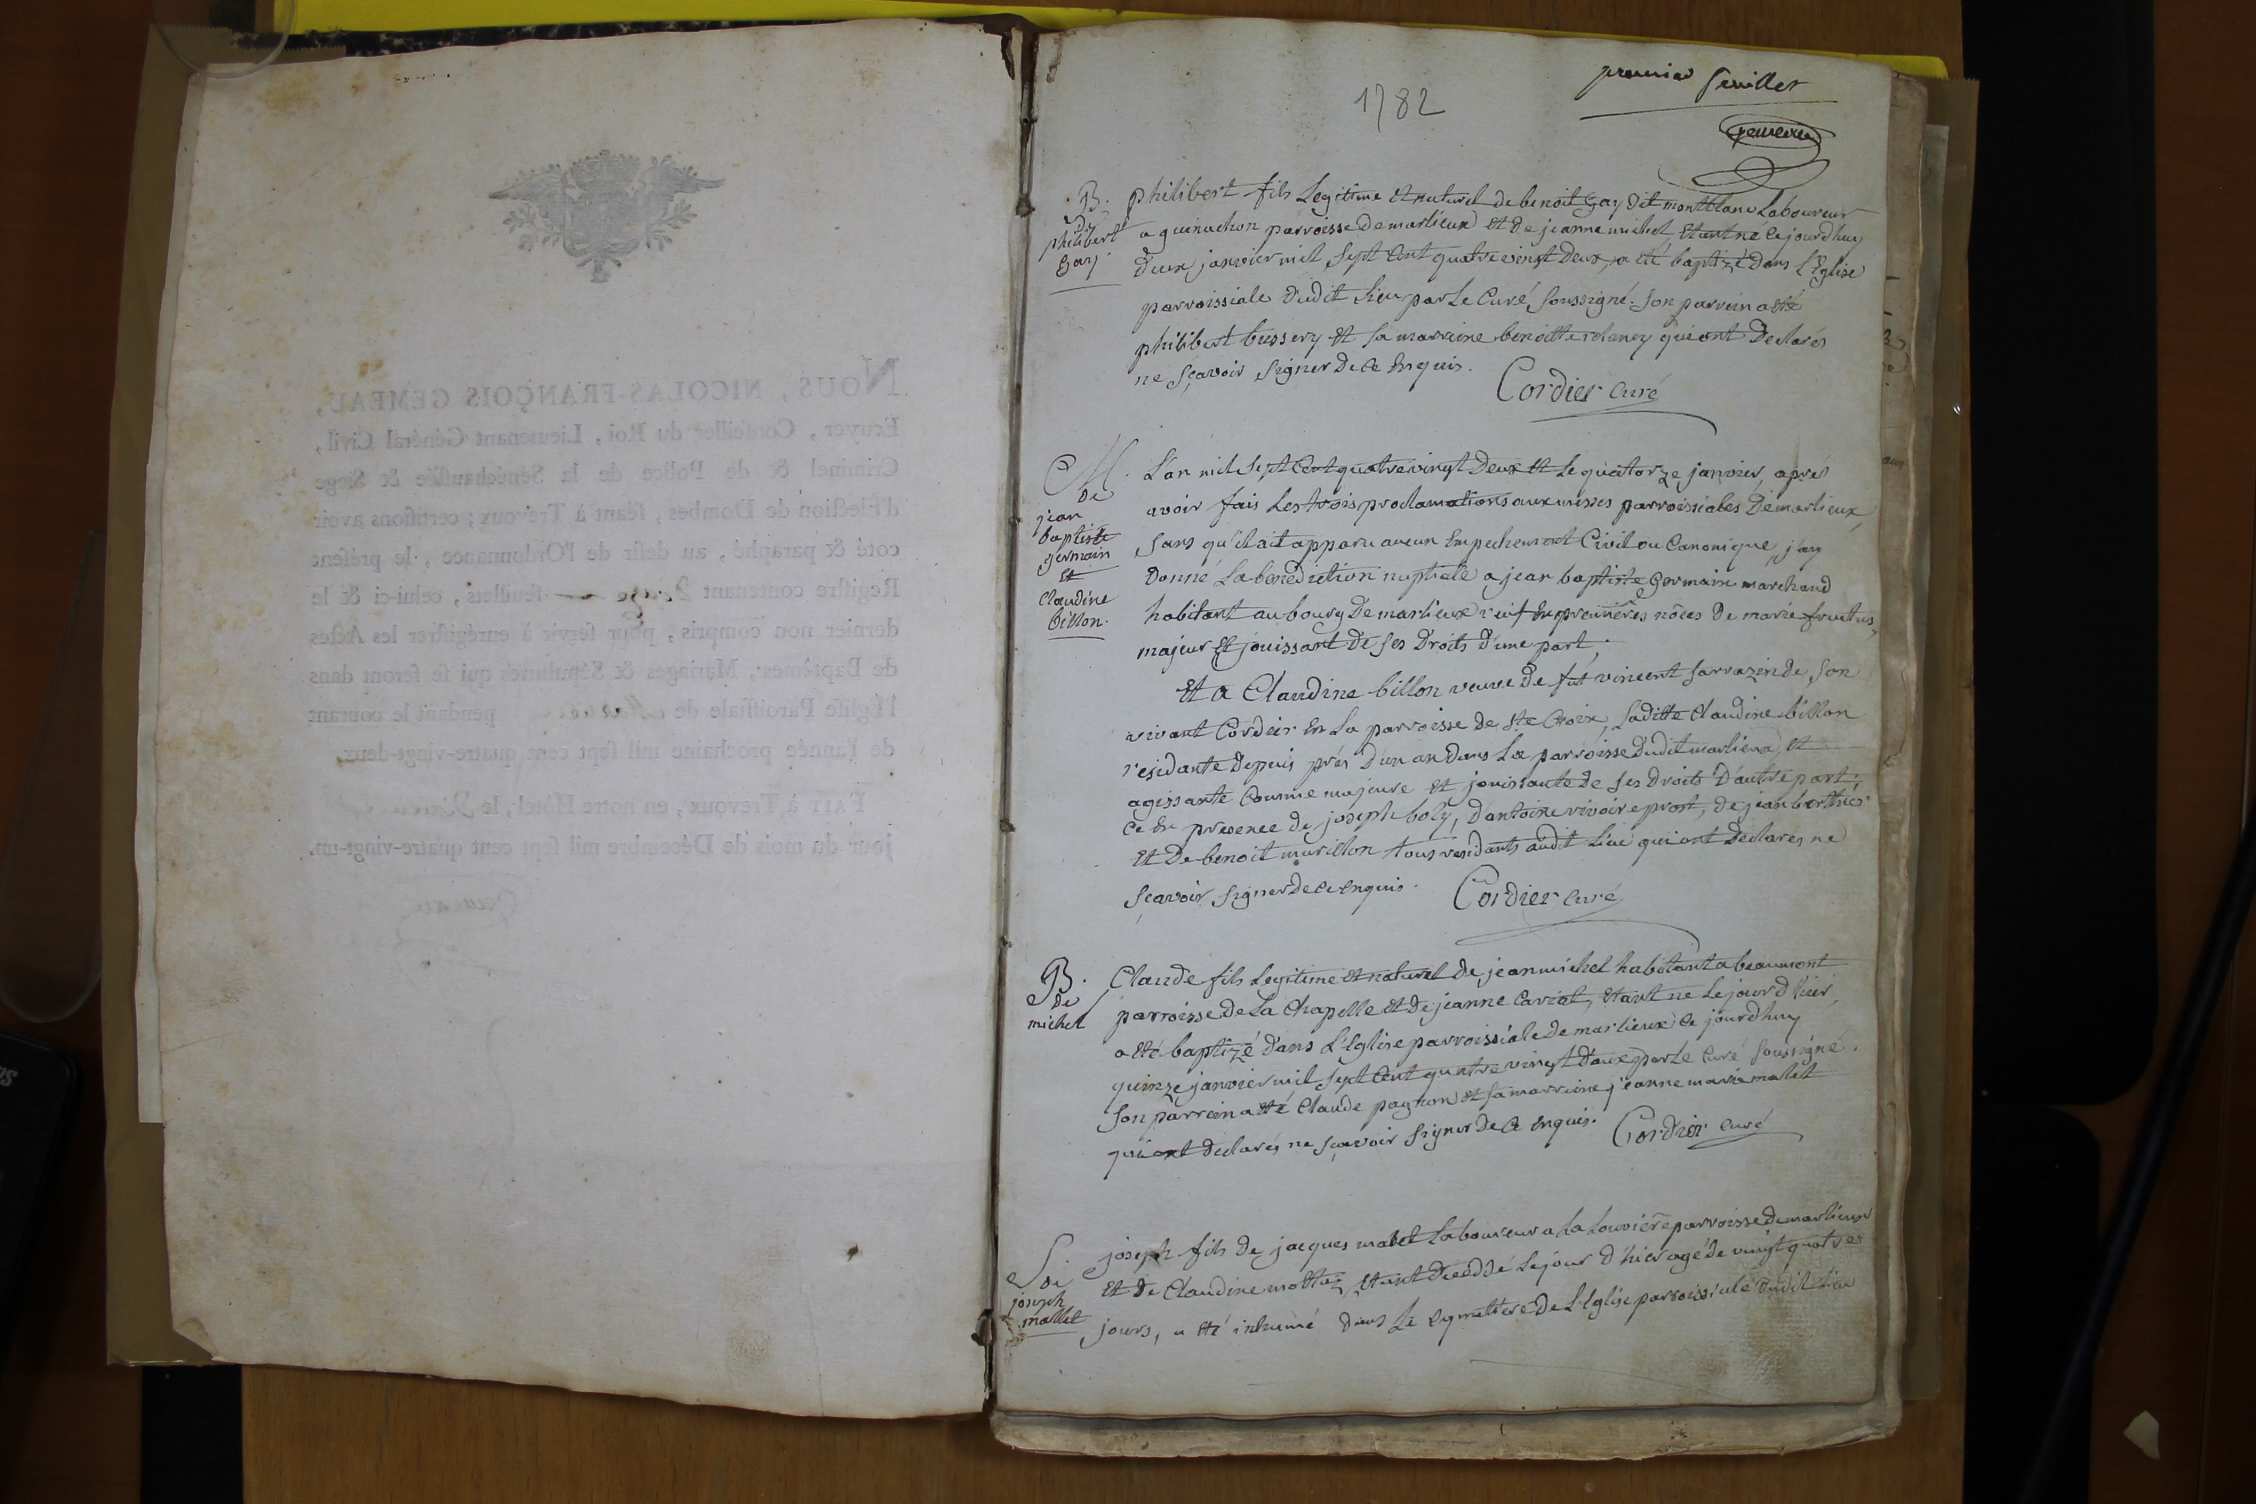 NOUS, NICOLAS-FRANÇOIS GEMEAU,
Ecuyer, Conseiller du Roi, Lieutenant Général Civil,
Criminel & de Police de la Sénéchaussée & Siege
d'Election de Dombes, séant à Trévoux ; certifions avoir
coté & paraphé, au desir de l'Ordonnance, le présent
Registre contenant feuillets, celui-ci & le
dernier non compris, pour servir à enrégistrer les Actes
de Baptêmes, Mariages & Sépultures qui se feront dans
l'Eglise Paroissiale de pendant le courant
de l'année prochaine mil sept cent quatre-vingt-deux.
FAIT à Trevoux, en notre Hôtel, le
jour du mois de Décembre mil sept cent quatre-vingt-un.
premier feuillet
1782
gemeau
B.
de
philibert
Gay.
philibert fils Legitime et naturel de benoit Gay dit montblanc Laboureur
a guinachon parroisse de marlieux et de jeanne michel, etant né ce jourdhuy
deux janvier mil sept cent quatre vingt deux, a eté baptizé dans l'Eglise
parroissiale dudit lieu par le Curé soussigné. son parrein a eté
philibert bussery et sa marreine benoitte qui ont declarés
ne sçavoir signer de ce enquis.
Cordier curé
M.
de
jean
baptiste
germain
et
Claudine
billon.
L'an mil sept cent quatre vingt deux et le quatorze janvier, aprés
avoir fais les trois proclamations aux messes parroissiales de marlieux,
sans qu'il ait apparu aucun empechement Civil ou Canonique, j'ay
donné la benediction nuptiale a jean baptiste Germain marchand
habitant au bourg de marlieux veuf en premieres nôces de marie frutus,
majeur et jouissant de ses droits d'une part,
et a Claudine billon veuve de fut vincent sarrazin de son
vivant Cordier en la parroisse de ste Croix, laditte Claudine billon
residante depuis prés d'un an dans la parroisse dudit marlieux et
agissante comme majeure et jouissante de ses droits d'autre part;
ce en presence de joseph boly, d'antoine vivoire prost, de jean berthier
et de benoit murillon tous residants audit lieu qui ont declares ne
sçavoir signer de ce enquis.
Cordier curé
B.
de
michel
Claude fils legitime et naturel de jean michel habitant a beaumont
parroisse de la Chapelle et de jeanne Cariat, etant ne le jour d'hier,
a eté baptizé dans l'Eglise parroissiale de marlieux ce jourdhuy
quinze janvier mil sept cent quatre vingt deux par le Curé soussigné.
son parrein a eté Claude pagnon et sa marreine jeanne marie malet
qui ont declarés ne sçavoir signer de ce enquis.
Cordier curé
S.
de
joseph
mallet
joseph fils de jacques malet Laboureur a la Louviere parroisse de marlieux
et de Claudine mottaz, etant decedé le jour d'hier agé de vingt quatres
jours, a eté inhumé dans le cymettiere de l'Eglise parroissiale dudit lieu